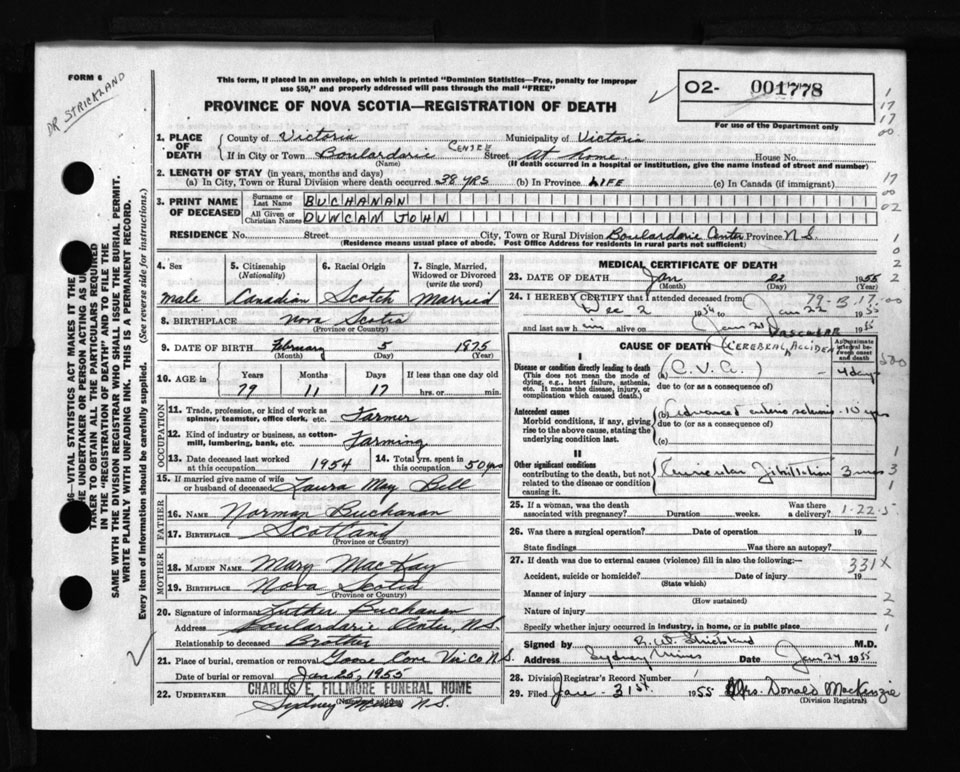 FORM 6
DR STRICKLAND
This form, if placed in an envelope, on which is printed "Dominion Statistics—Free, penalty for improper
use $50," and properly addressed will pass through the mail "FREE"
PROVINCE OF NOVA SCOTIA—REGISTRATION OF DEATH
O2- 001778
For use of the Department only
1. PLACE OF DEATH
County of Victoria Municipality of Victoria
If in City or Town Boulardarie Centre Street at home House No.
(Name) (If death occurred in a hospital or institution, give the name instead of street and number)
2. LENGTH OF STAY (in years, months and days)
(a) In City, Town or Rural Division where death occurred 38 YRS (b) In Province LIFE (c) In Canada (if immigrant)
3. PRINT NAME OF DECEASED
Surname or Last Name BUCHANAN
All Given or Christian Names DUNCAN JOHN
RESIDENCE No. Street City, Town or Rural Division Boulardarie Center Province N.S.
(Residence means usual place of abode. Post Office Address for residents in rural parts not sufficient)
4. Sex male
5. Citizenship (Nationality) Canadian
6. Racial Origin Scotch
7. Single, Married, Widowed or Divorced (write the word) Married
8. BIRTHPLACE Nova Scotia
(Province or Country)
9. DATE OF BIRTH February 5 1875
(Month) (Day) (Year)
10. AGE in Years 79 Months 11 Days 17 If less than one day old hrs. or min.
OCCUPATION
11. Trade, profession, or kind of work as spinner, teamster, office clerk, etc. Farmer
12. Kind of industry or business, as cotton-mill, lumbering, bank, etc. Farming
13. Date deceased last worked at this occupation 1954
14. Total yrs. spent in this occupation 50 yrs
15. If married give name of wife or husband of deceased Laura May Bell
FATHER
16. NAME Norman Buchanan
17. BIRTHPLACE Scotland
(Province or Country)
MOTHER
18. MAIDEN NAME Mary MacKay
19. BIRTHPLACE Nova Scotia
(Province or Country)
20. Signature of informant Luther Buchanan
Address Boulardarie Center, N.S.
Relationship to deceased Brother
21. Place of burial, cremation or removal Goose Cove Vic. Co. N.S.
Date of burial or removal Jan 25, 1955
22. UNDERTAKER CHARLES E. FILLMORE FUNERAL HOME
(Name and address)
Sydney Mines N.S.
MEDICAL CERTIFICATE OF DEATH
23. DATE OF DEATH Jan 22 1955
(Month) (Day) (Year)
24. I HEREBY CERTIFY that I attended deceased from
Dec 2 1954 to Jan 22 1955
and last saw him alive on Jan 21 1955
79-B-17
CAUSE OF DEATH (CEREBRAL VASCULAR ACCIDENT
Approximate interval between onset and death
I
Disease or condition directly leading to death
(This does not mean the mode of dying, e.g., heart failure, asthenia, etc. It means the disease, injury, or complication which caused death.)
(a) C.V.A. 4 days
due to (or as a consequence of)
Antecedent causes
Morbid conditions, if any, giving rise to the above cause, stating the underlying condition last.
(b) advanced arterio sclerosis 10 yrs
due to (or as a consequence of)
(c)
II
Other significant conditions
contributing to the death, but not related to the disease or condition causing it.
Auricular Fibrillation 3 mos
25. If a woman, was the death associated with pregnancy? Duration weeks. Was there a delivery?
1-22-5
26. Was there a surgical operation? Date of operation 19
State findings Was there an autopsy?
27. If death was due to external causes (violence) fill in also the following:— 331X
Accident, suicide or homicide? Date of injury 19
(State which)
Manner of injury
(How sustained)
Nature of injury
Specify whether injury occurred in industry, in home, or in public place
Signed by R. W. Strickland M.D.
Address Sydney Mines Date Jan 24 1955
28. Division Registrar's Record Number 1
29. Filed Jan. 31st 1955 Mrs. Donald MacKenzie
(Division Registrar)
VITAL STATISTICS ACT MAKES IT THE
THE UNDERTAKER OR PERSON ACTING AS
TAKER TO OBTAIN ALL THE PARTICULARS REQUIRED
IN THE "REGISTRATION OF DEATH" AND TO FILE THE
SAME WITH THE DIVISION REGISTRAR WHO SHALL ISSUE THE BURIAL PERMIT.
WRITE PLAINLY WITH UNFADING INK. THIS IS A PERMANENT RECORD.
Every item of information should be carefully supplied. (See reverse side for instructions.)